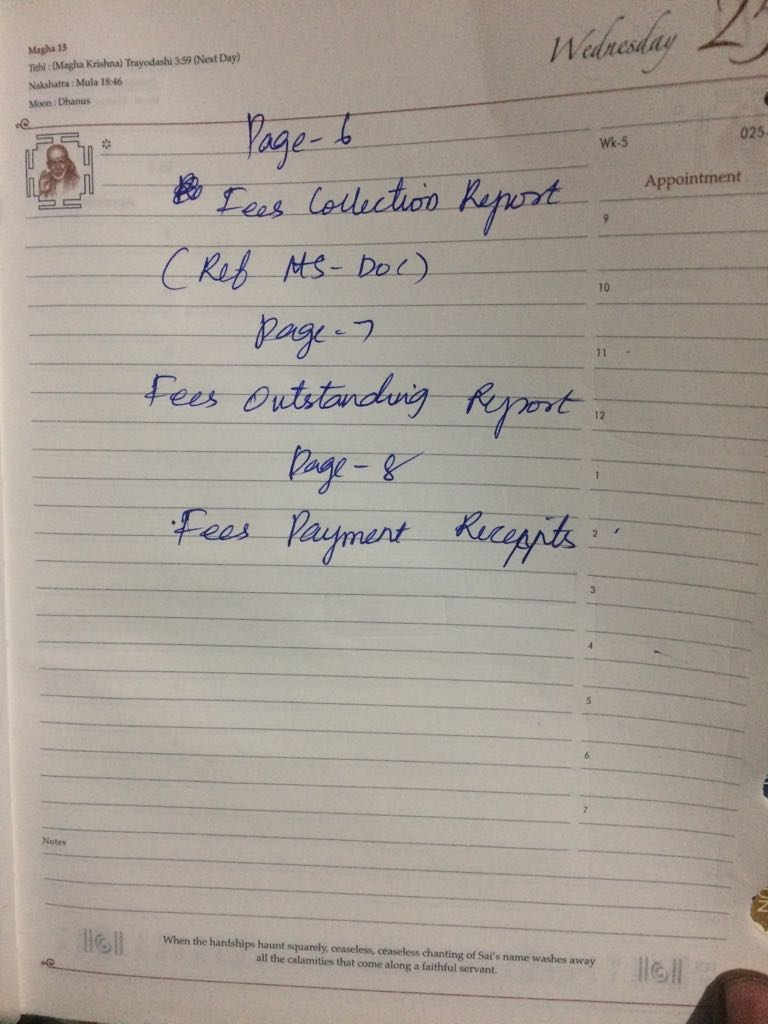 Magha 13
Tithi : (Magha Krishna) Trayodashi 3:59 (Next Day)
Nakshatra : Mula 18:46
Moon : Dhanus
Wednesday
Page-6
Wk-5
025-
Fees Collection Report
Appointment
9
(Ref MS-DOC)
10
Page-7
11
Fees Outstanding Report
12
Page-8
1
Fees Payment Receppits
2
3
4
5
6
7
Notes
When the hardships haunt squarely, ceaseless, ceaseless chanting of Sai's name washes away
all the calamities that come along a faithful servant.